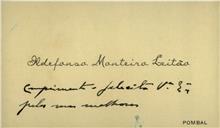 Ildefonso Monteiro Leitão
Cumprimenta e felicita V.ª Ex.ª
pelas suas melhoras
POMBAL